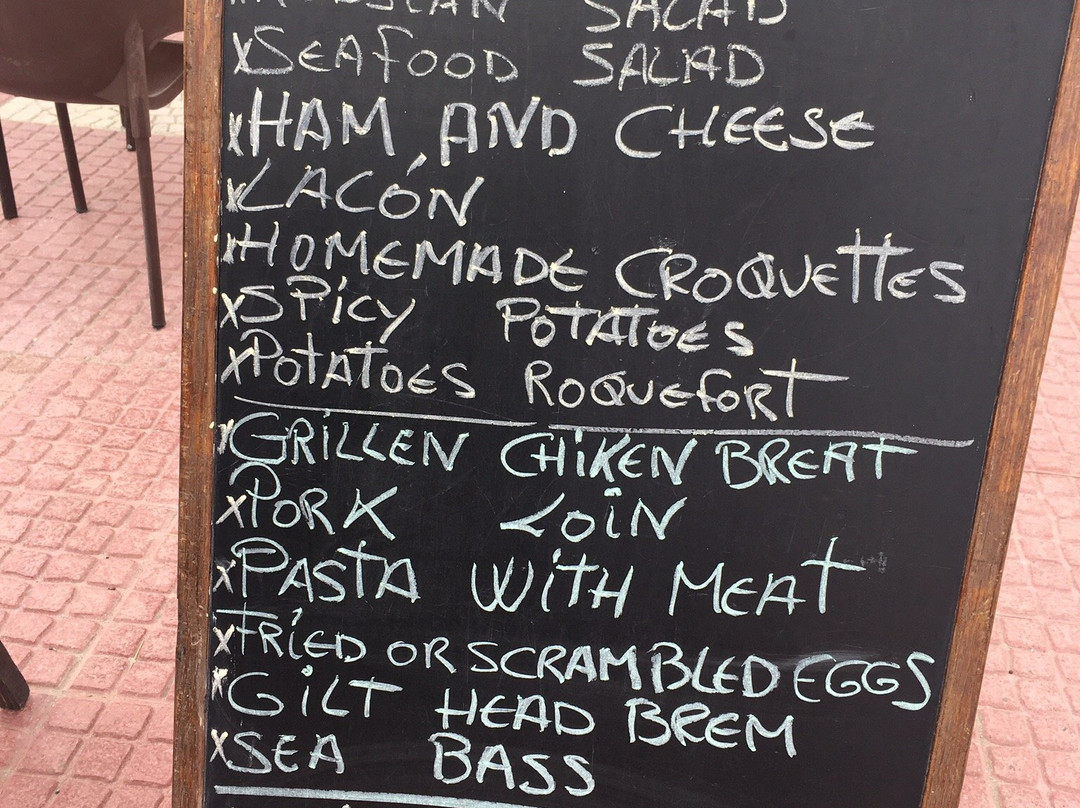 SALAD
xSEAFOOD SALAD
xHAM AND CHEESE
xLACÓN
xHOMEMADE CROQUETTES
xSPICY POTATOES
xPOTATOES ROQUEFORT
xGRILLEN CHIKEN BREAT
xPORK LOIN
xPASTA WITH MEAT
xFRIED OR SCRAMBLED EGGS
xGILT HEAD BREM
xSEA BASS